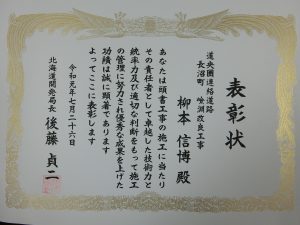 表彰状
道央圏連絡道路
長沼町 改良工事
柳本 信博 殿
あなたは頭書工事の施工に当たり
その責任者として卓越した技術力と
統率力及び適切な判断をもって施工
の管理に努力され優秀な成果を上げた
功績は誠に顕著であります
よってここに表彰します
令和元年七月二十六日
北海道開発局長 後藤 貞二